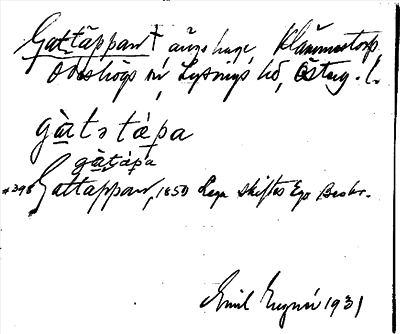 Gattäppan † ängshage, Klämmestorp
Ödeshögs sn, Lysings hd, Östug. l.
gàtə tápa
gàtápa
*398 Gattäppan, 1850 Laga skiftes Ego Beskr.
Emil 1931